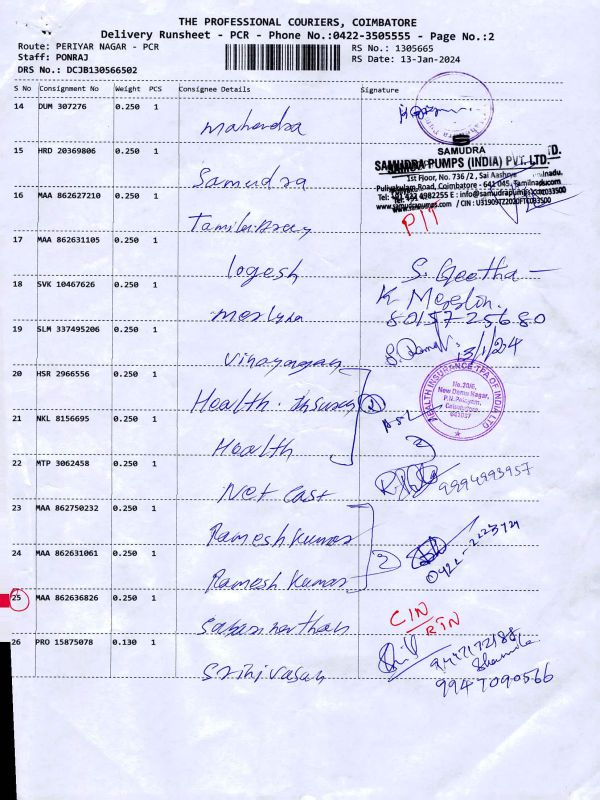 THE PROFESSIONAL COURIERS, COIMBATORE
Delivery Runsheet - PCR - Phone No.:0422-3505555 - Page No.:2
Route: PERIYAR NAGAR - PCR
RS No.: 1305665
Staff: PONRAJ
RS Date: 13-Jan-2024
DRS No.: DCJB130566502
S No Consignment No Weight PCS Consignee Details Signature
14 DUM 307276 0.250 1
Mahendra
SAMUDRA
15 HRD 20369806 0.250 1
SAMUDRA PUMPS (INDIA) PVT. LTD.
1st Floor, No. 736/2, Sai Aashraya
Samudra
Puliyakulam Road, Coimbatore - 641 045, Tamilnadu.
16 MAA 862627210 0.250 1
PIT
17 MAA 862631105 0.250 1
logesh
S. Geetha
18 SVK 10467626 0.250 1
8015725680
19 SLM 337495206 0.250 1
13/1/24
Vinayagan
20 HSR 2966556 0.250 1
HEALTH INSURANCE TPA OF INDIA LTD
No.20/6,
New Damu Nagar,
P.N.Palayam,
Coimbatore
641037
Health. Insuran
21 NKL 8156695 0.250 1
Health
2
22 MTP 3062458 0.250 1
9994993957
Net Cast
23 MAA 862750232 0.250 1
Ramesh Kumar
2
24 MAA 862631061 0.250 1
Ramesh Kumar
25 MAA 862636826 0.250 1
CIN
RTN
26 PRO 15875078 0.130 1
Sharmila
Srinivasan
9947090566